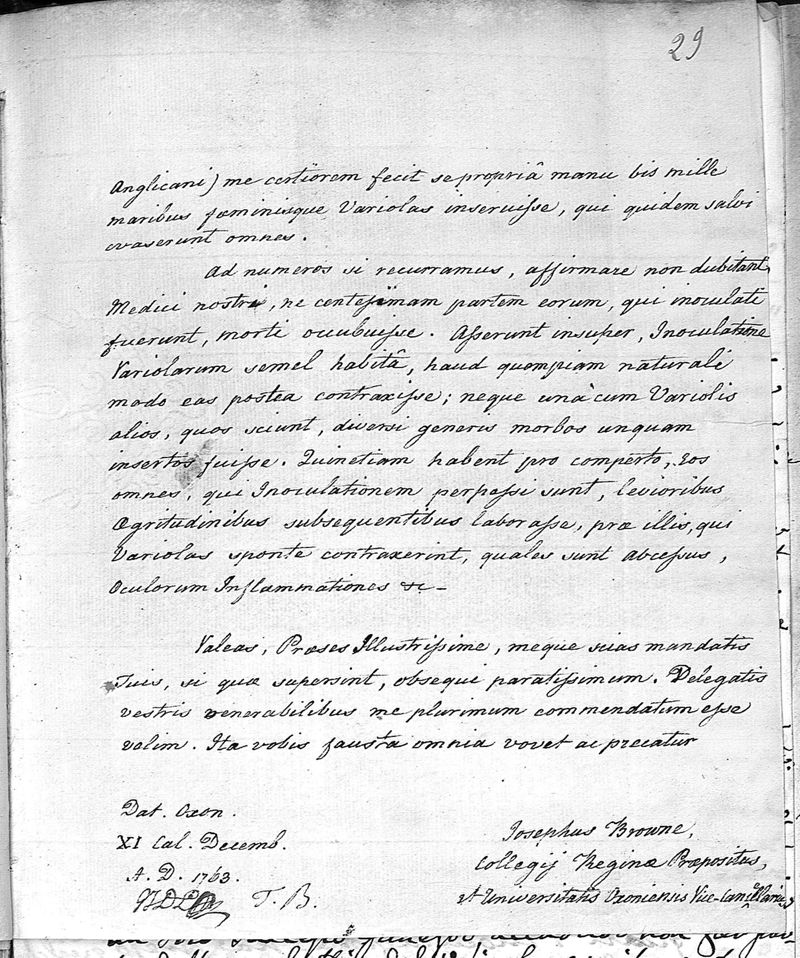 29
Anglicani) me certiorem fecit se propriâ manu bis mille
maribus fœminisque Variolas inseruisse, qui quidem salvi
evaserunt omnes.
Ad numeros si recurramus, affirmare non dubitant
Medici nostri, ne centesimam partem eorum, qui inoculati
fuerunt, morti occubuesse. Asserunt insuper, Inoculatione
Variolarum semel habitâ, haud quempiam naturali
modo eas postea contraxisse; neque unà cum Variolis
alios, quos sciunt, diversi generis morbos unquam
insertos fuisse. Quinetiam habent pro comperto, eos
omnes, qui Inoculationem perpessi sunt, levioribus
Ægritudinibus subsequentibus laborasse, præ illis, qui
Variolas sponte contraxerint, quales sunt Abcessus,
Oculorum Inflammationes &c–
Valeas, Præses Illustrissime, meque scias mandatis
Tuis, si quæ supersint, obsequi paratissimum. Delegatis
vestris venerabilibus me plurimum commendatum esse
velim. Ita vobis fausta omnia vovet ac precatur
Dat. Oxon.
XI Cal. Decemb.
A. D. 1763.
T. B.
Josephus Browne,
Collegij Reginæ Præpositus,
et Universitatis Oxoniensis Vice-Cancellarius